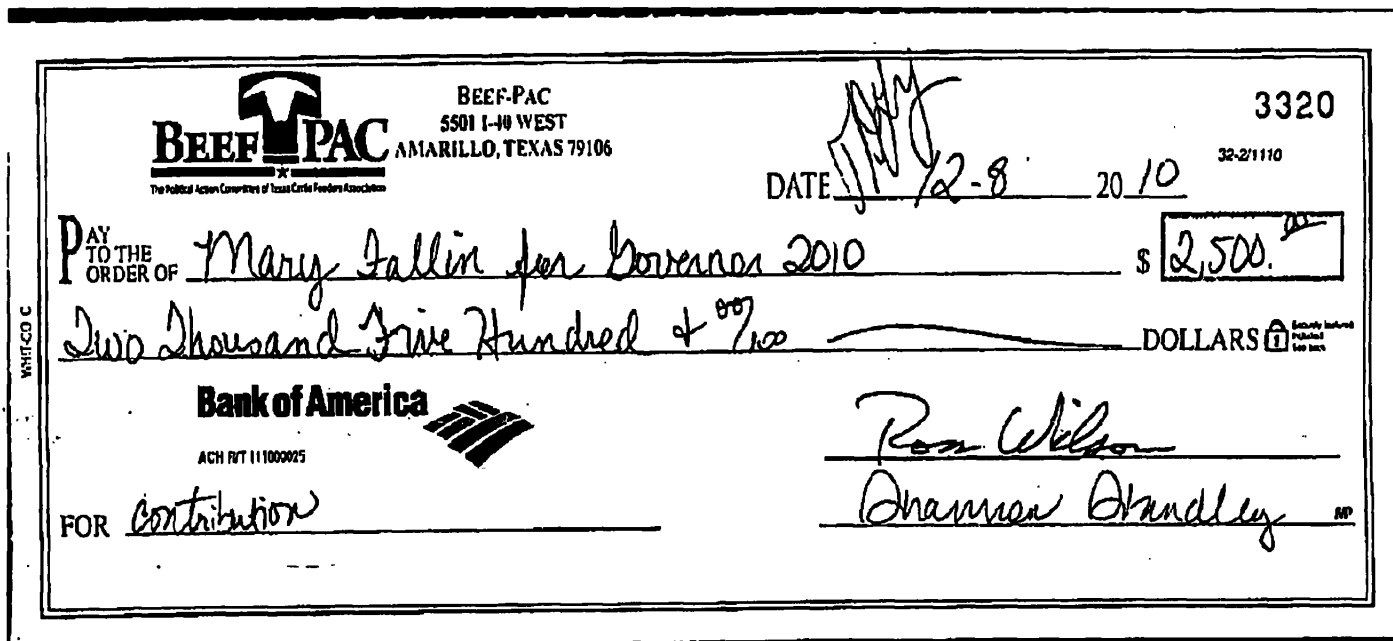 BEEF PAC
The Political Action Committee of Texas Cattle Feeders Association
BEEF-PAC
5501 I-40 WEST
AMARILLO, TEXAS 79106
3320
32-2/1110
DATE 12-8 20 10
PAY TO THE ORDER OF Mary Fallin for Governor 2010 $ 2,500.00
Two Thousand Five Hundred & 00/100 DOLLARS
Bank of America
ACH R/T 111000025
Ross Wilson
FOR Contribution
MP
WHIT-CO C